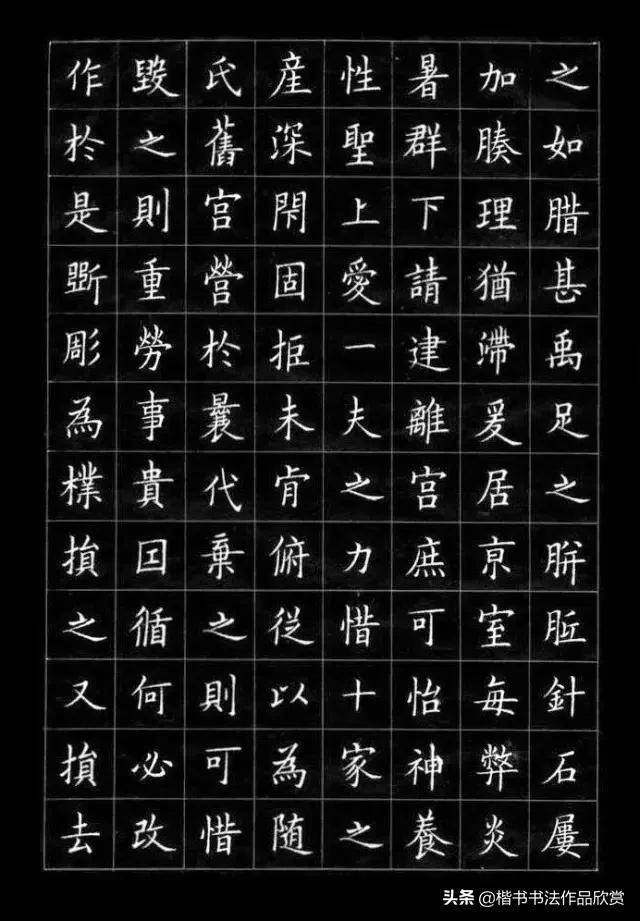 之如腊甚禹足之胼胝針石屢
加腠理猶滯爰居京室每弊炎
暑群下請建離宮庶可怡神養
性聖上愛一夫之力惜十家之
産深閇固拒未肯俯從以為随
氏舊宮營於曩代棄之則可惜
毀之則重勞事貴因循何必改
作於是斵彫為樸損之又損去
头条 @楷书书法作品欣赏